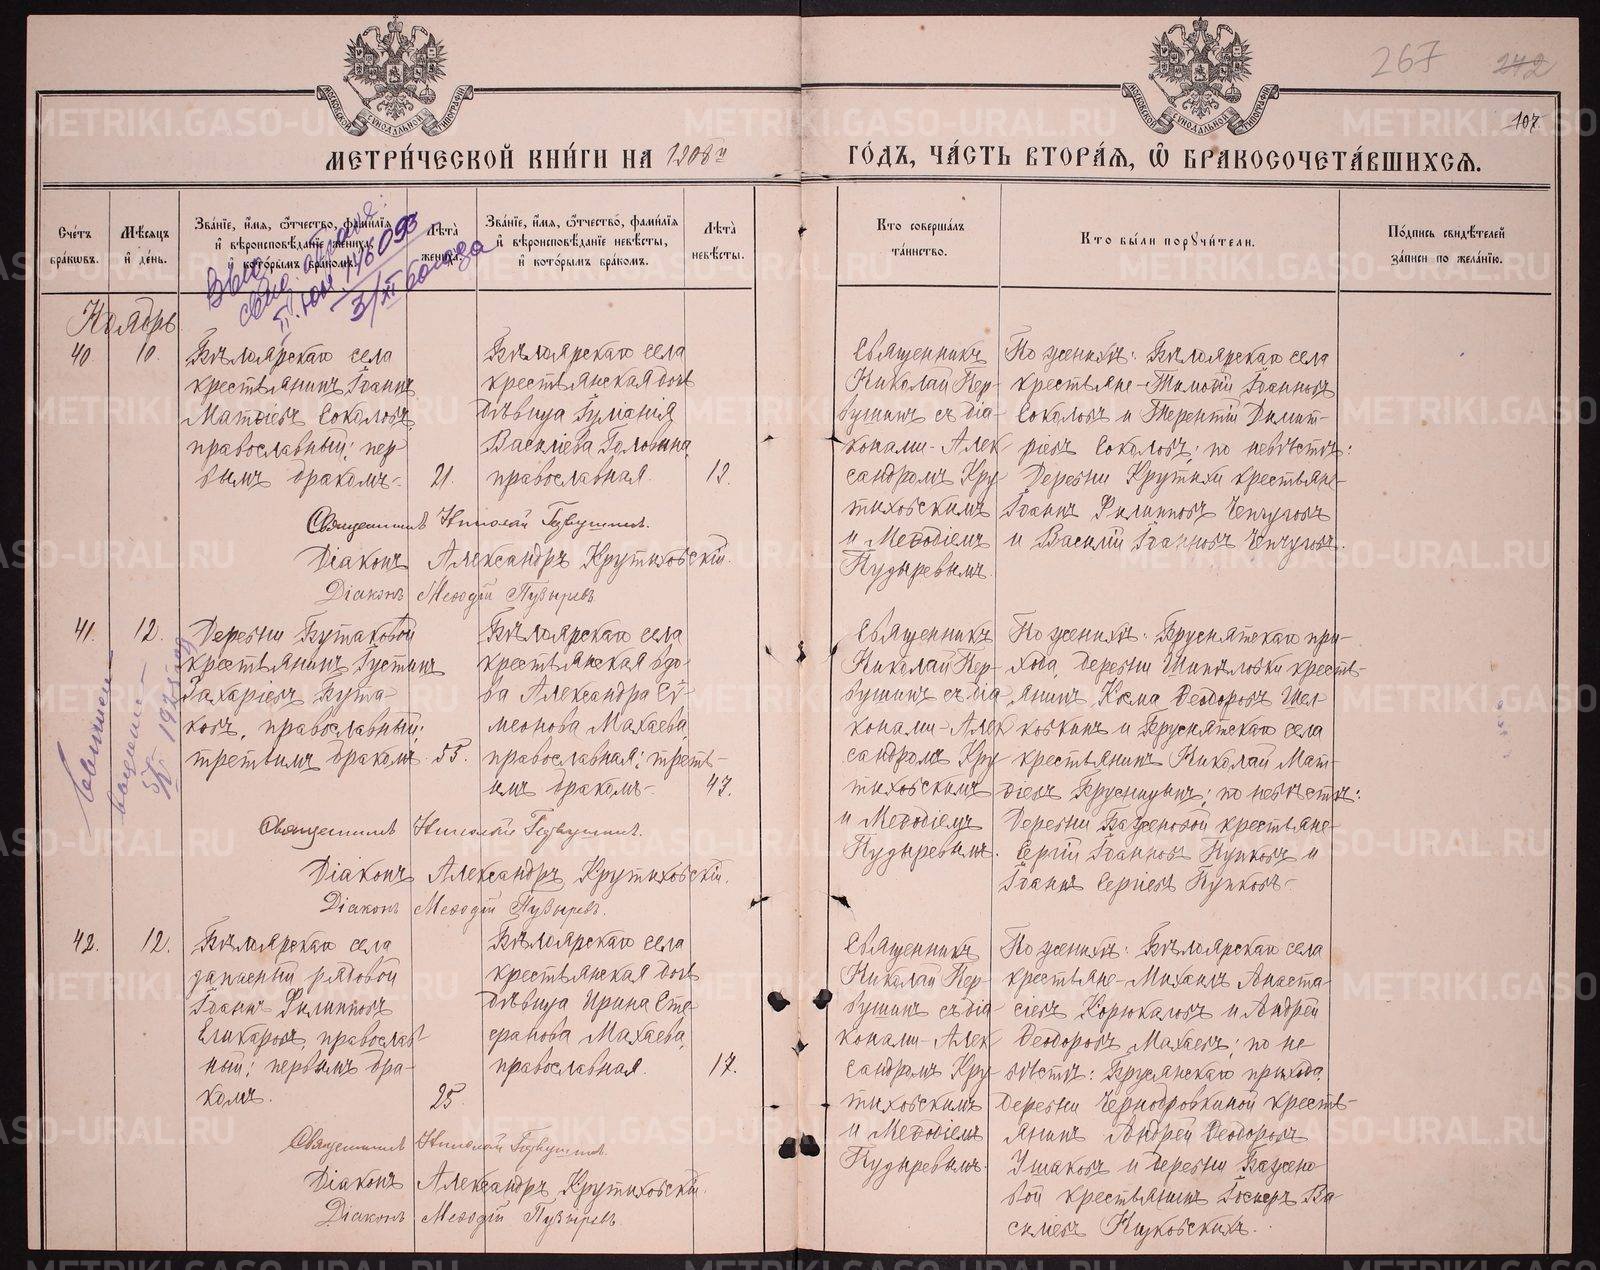 267 242
107
МЕТРИ́ЧЕСКОЙ КНИ́ГИ НА 1908 й
ГО́ДЪ, ЧА́СТЬ ВТОРА́Я, Ѡ БРАКОСОЧЕТА́ВШИХСЯ.
Сче́тъ бра́кѡвъ.
Мѣ́сяцъ и҆ де́нь.
Зва́нїе, и҆́мя, ѻ҆́тчество, фами́лїя и҆ вѣроисповѣ́данїе жениха̀, и҆ кото́рымъ бра́комъ.
Лѣ́та жениха̀.
Зва́нїе, и҆́мя, ѻ҆́тчество, фами́лїя и҆ вѣроисповѣ́данїе невѣ́сты, и҆ кото́рымъ бра́комъ.
Лѣ́та невѣ́сты.
Кто соверша́лъ та́инство.
Кто бы́ли порꙋчи́тели.
По́дпись свидѣ́телей за́писи по жела́нїю.
Ноябрь
40
10.
Бѣлоярскаго села
крестьянинъ Іоаннъ
Матѳіевъ Соколовъ
православный; пер-
вымъ бракомъ-
21.
Бѣлоярскаго села
крестьянская дочь
дѣвица Іуліанія
Василіева Головина,
православная.
19.
Священникъ
Николай Пер-
вушинъ съ діа-
конами- Алек-
сандромъ Кру-
тиховскимъ
и Меѳодіемъ
Пузыревымъ.
По женихѣ: Бѣлоярскаго села
крестьяне-Тимоѳій Іоанновъ
Соколовъ и Терентій Димит-
ріевъ Соколовъ; по невѣстѣ:
Деревни Крутихи крестьяне-
Іоаннъ Филипповъ Чепуговъ
и Василій Іоанновъ Чепуговъ.
Священникъ Николай Первушинъ.
Діаконъ Александръ Крутиховскій.
Діаконъ Меѳодій Пузыревъ
41.
12.
Деревни Бутаковой
крестьянинъ Іустинъ
Захаріевъ Бута-
ковъ, православный;
третьимъ бракомъ.
55.
Бѣлоярскаго села
крестьянская вдо-
ва Александра Сѵ-
меонова Махаева,
православная; треть-
имъ бракомъ-
47.
Священникъ
Николай Пер-
вушинъ съ діа-
конами- Алек-
сандромъ Кру-
тиховскимъ
и Меѳодіемъ
Пузыревымъ.
По женихѣ: Бруснятскаго при-
хода, деревни Шипѣловки кресть-
янинъ Косма Ѳеодоровъ Шел-
ковкинъ и Бруснятскаго села
крестьянинъ Николай Мат-
ѳіевъ Брусницынъ; по невѣстѣ:
Деревни Баженовой крестьяне-
Сергій Іоанновъ Пупковъ и
Іоаннъ Сергіевъ Пупковъ-
Священникъ Николай Первушинъ.
Діаконъ Александръ Крутиховскій.
Діаконъ Меѳодій Пузыревъ.
42.
12.
Бѣлоярскаго села
запасный рядовой
Іоаннъ Филипповъ
Еликаровъ, православ-
ный; первымъ бра-
комъ.
25.
Бѣлоярскаго села
крестьянская дочь
дѣвица Ирина Сте-
фанова Махаева,
православная.
17.
Священникъ
Николай Пер-
вушинъ съ діа-
конами- Алек-
сандромъ Кру-
тиховскимъ
и Меѳодіемъ
Пузыревымъ.
По женихѣ: Бѣлоярскаго села
крестьяне-Михаилъ Анаста-
сіевъ Корюкаловъ и Андрей
Ѳеодоровъ Махаевъ; по не-
вѣстѣ: Бруснянскаго прихода,
деревни Чернобровкиной кресть-
янинъ Андрей Ѳеодоровъ
Ушаковъ и деревни Бажено-
вой крестьянинъ Іосифъ Ва-
силіевъ Нуковскихъ.
Священникъ Николай Первушинъ.
Діаконъ Александръ Крутиховскій.
Діаконъ Меѳодій Пузыревъ.
METRIKI.GASO-URAL.RU